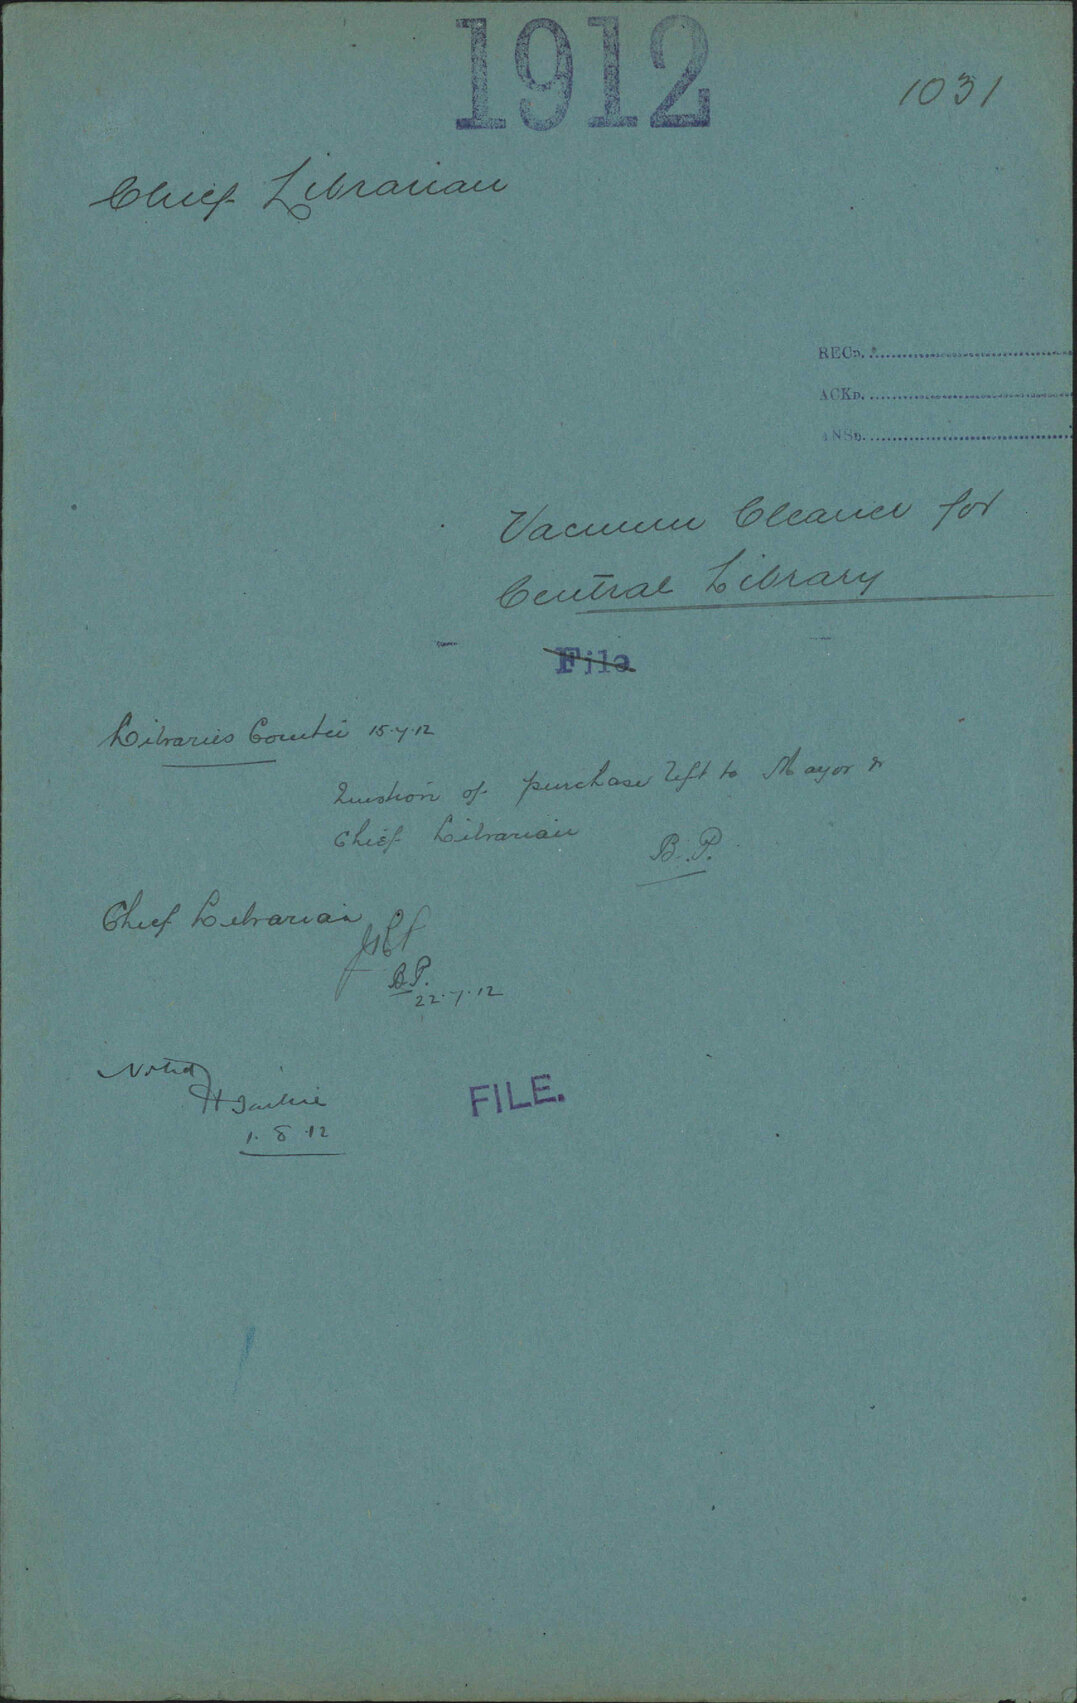 1912
1031
Chief Librarian
RECD.
ACKD.
ANSD.
Vacuum Cleaner for
Central Library
File
Libraries Comtee 15.7.12
Question of purchase left to Mayor &
Chief Librarian
B.P.
Chief Librarian
B.P.
22.7.12
Noted
H Baillie
1.8.12
FILE.